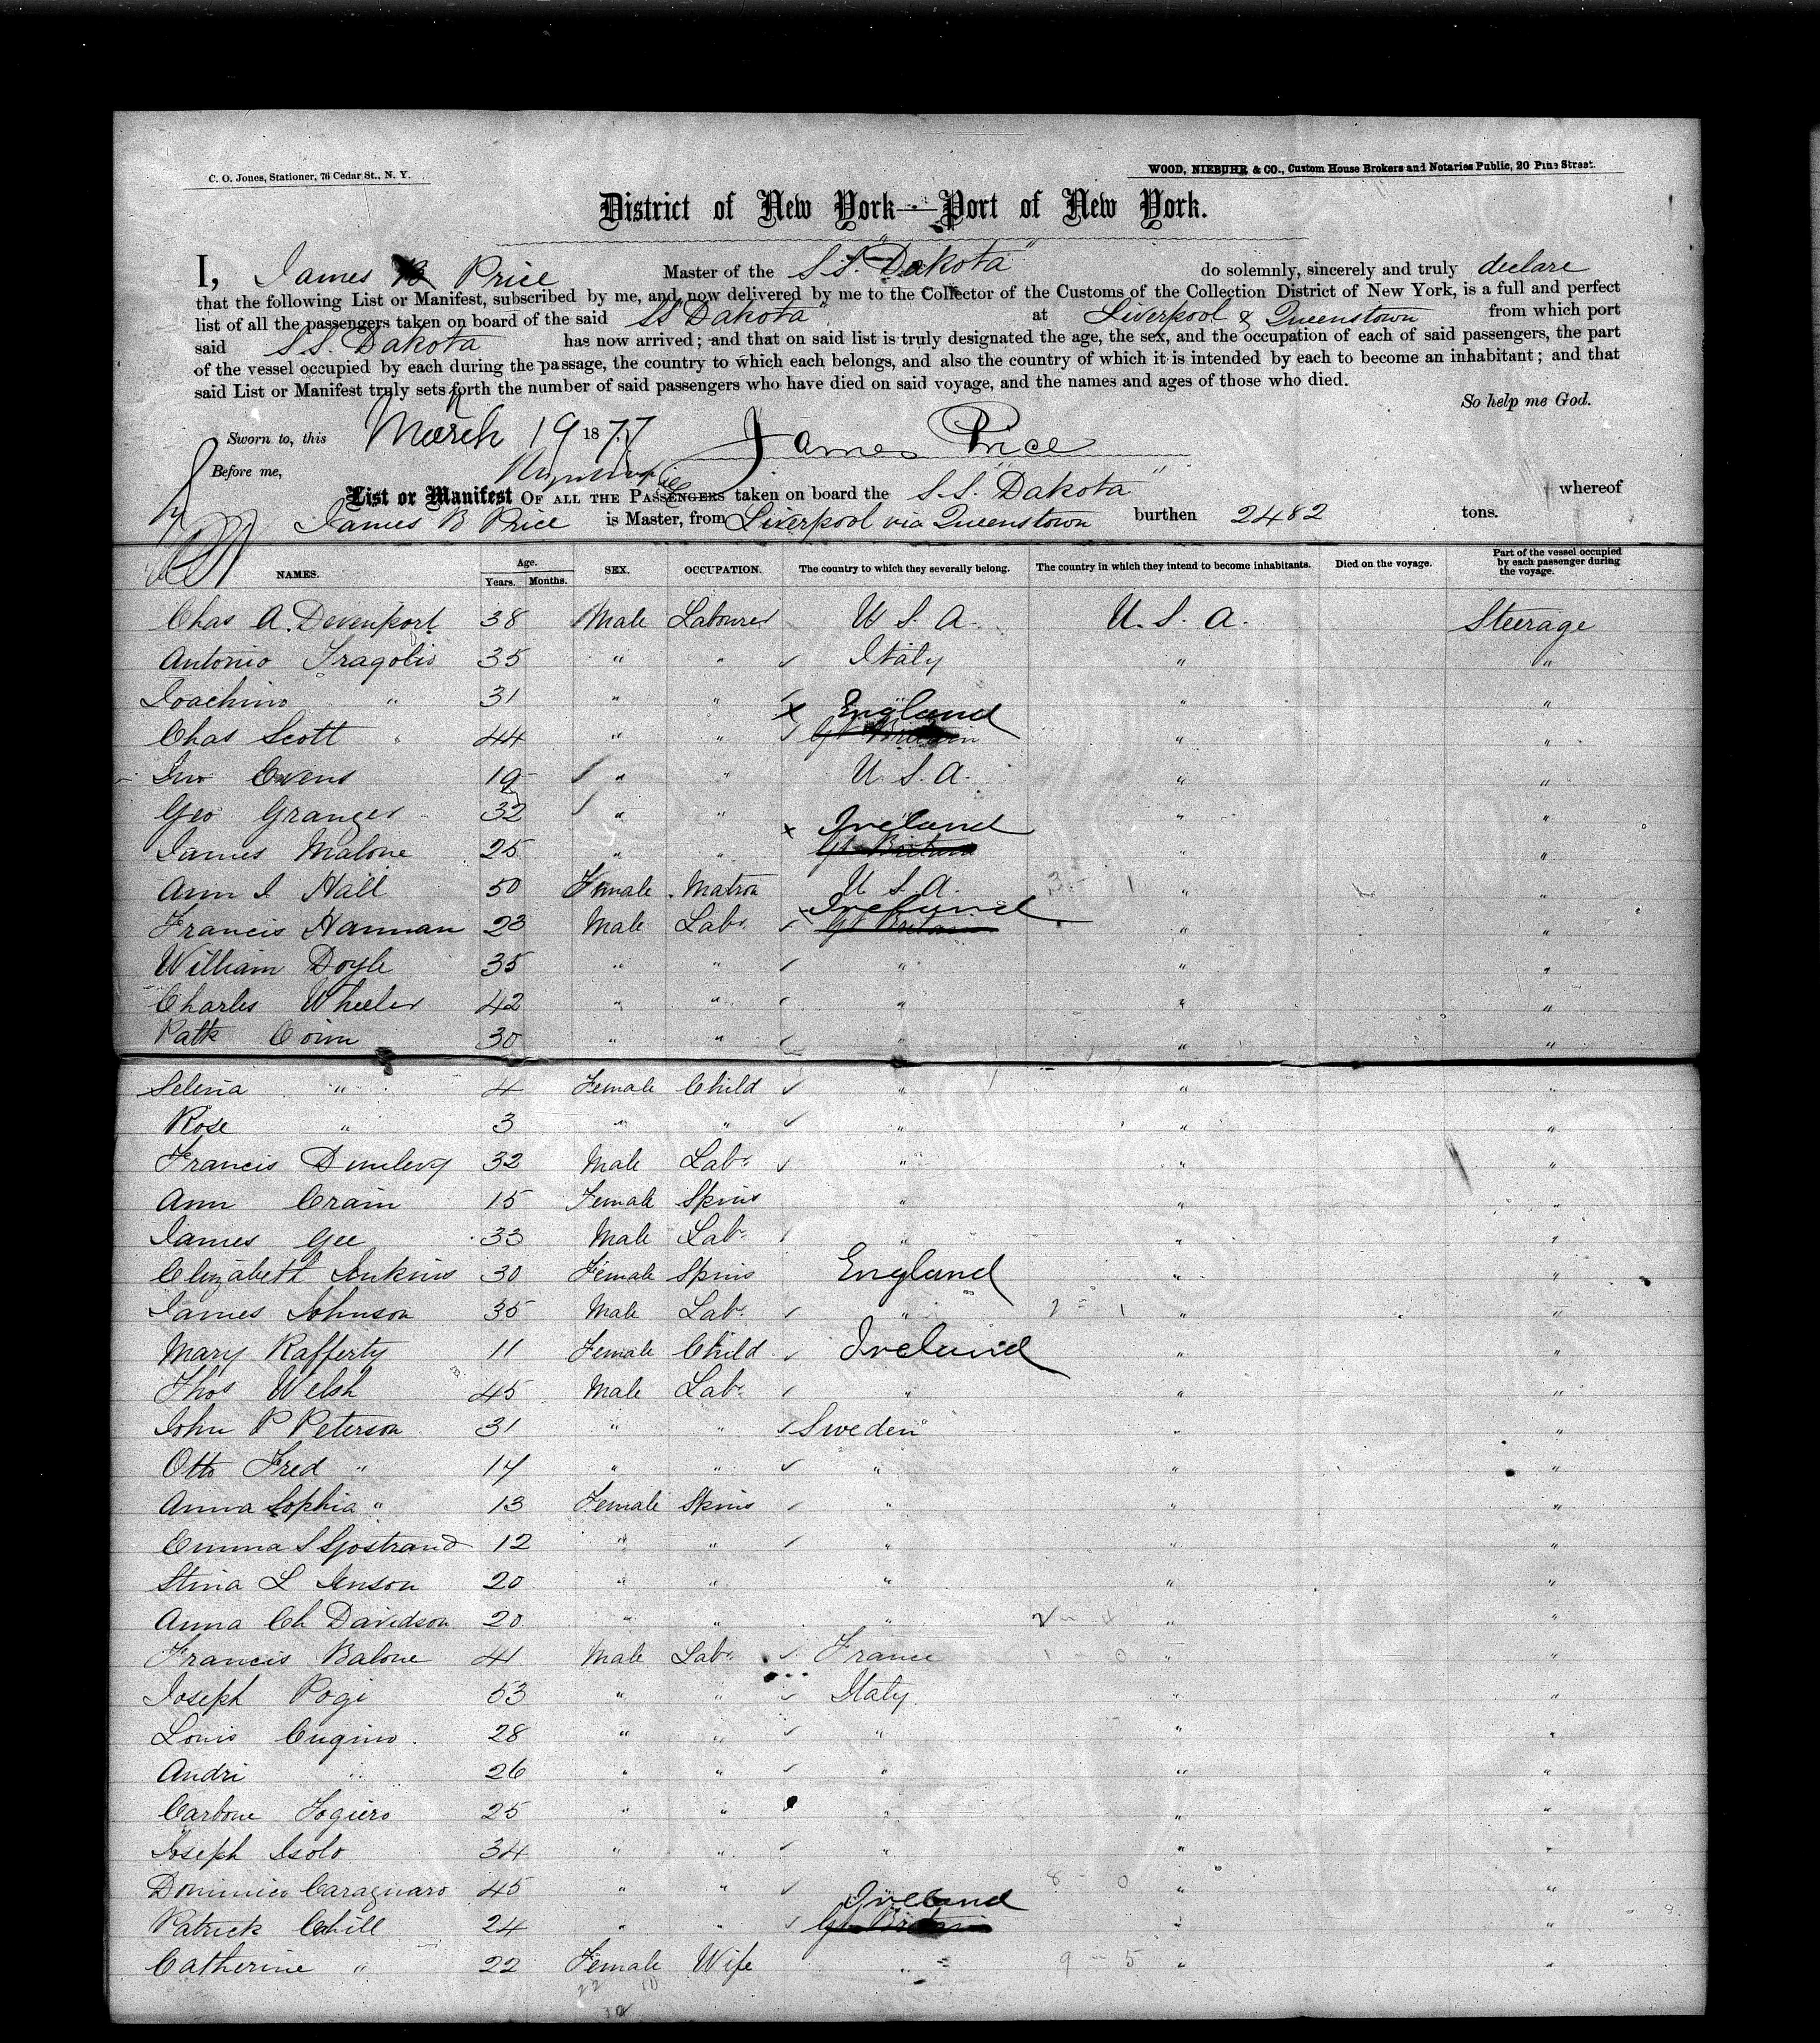 C. O. Jones, Stationer, 76 Cedar St., N. Y.
WOOD, NIEBUHR & CO., Custom House Brokers and Notaries Public, 20 Pine Street.
District of New York—Port of New York.
I, James B Price Master of the S.S. "Dakota" do solemnly, sincerely and truly declare
that the following List or Manifest, subscribed by me, and now delivered by me to the Collector of the Customs of the Collection District of New York, is a full and perfect
list of all the passengers taken on board of the said SS Dakota at Liverpool & Queenstown from which port
said S.S. Dakota has now arrived; and that on said list is truly designated the age, the sex, and the occupation of each of said passengers, the part
of the vessel occupied by each during the passage, the country to which each belongs, and also the country of which it is intended by each to become an inhabitant; and that
said List or Manifest truly sets forth the number of said passengers who have died on said voyage, and the names and ages of those who died.
So help me God.
Sworn to, this March 19 1877 James Price
Before me,
List or Manifest OF ALL THE PASSENGERS taken on board the S.S. "Dakota" whereof
James B Price is Master, from Liverpool via Queenstown burthen 2482 tons.
NAMES. Age. Years. Months. SEX. OCCUPATION. The country to which they severally belong. The country in which they intend to become inhabitants. Died on the voyage. Part of the vessel occupied by each passenger during the voyage.
Chas A. Devenport 38 Male Labourer U S A. U. S. A. Steerage
Antonio Fragolis 35 " " Italy " "
Joachino " 31 " " " " "
Chas Scott 44 " " England Gt Britain " "
Jno Evens 19 " " U. S. A. " "
Geo Granger 32 " " " " "
James Malone 25 " " Ireland Gt Britain " "
Ann J Hall 50 Female Matron U S A. " "
Francis Hannan 23 Male Labr Ireland Gt Britain " "
William Doyle 35 " " " " "
Charles Wheeler 42 " " " " "
Patk Coinn 30 " " " " "
Selena " 4 Female Child " " "
Rose " 3 " " " " "
Francis Dunlevy 32 Male Labr " " "
Ann Crain 15 Female Spins " " "
James Gee 33 Male Labr " " "
Elizabeth Jenkins 30 Female Spins England " "
James Johnson 35 Male Labr " " "
Mary Rafferty 11 Female Child Ireland " "
Thos Welsh 45 Male Labr " " "
John P Peterson 31 " " Sweden " "
Otto Fred " 14 " " " " "
Anna Sophia " 13 Female Spins " " "
Emma S Sjostrand 12 " " " " "
Stina L Jenson 20 " " " " "
Anna Ch Davidson 20 " " " " "
Francis Balone 41 Male Labr France " "
Joseph Pogi 53 " " Italy " "
Louis Cugino 28 " " " " "
Andri " 26 " " " " "
Carbone Fogiero 25 " " " " "
Joseph Isolo 34 " " " " "
Dominico Caragnaro 45 " " " " "
Patrick Cahill 24 " " Ireland Gt Britain " "
Catherine " 22 Female Wife " " "